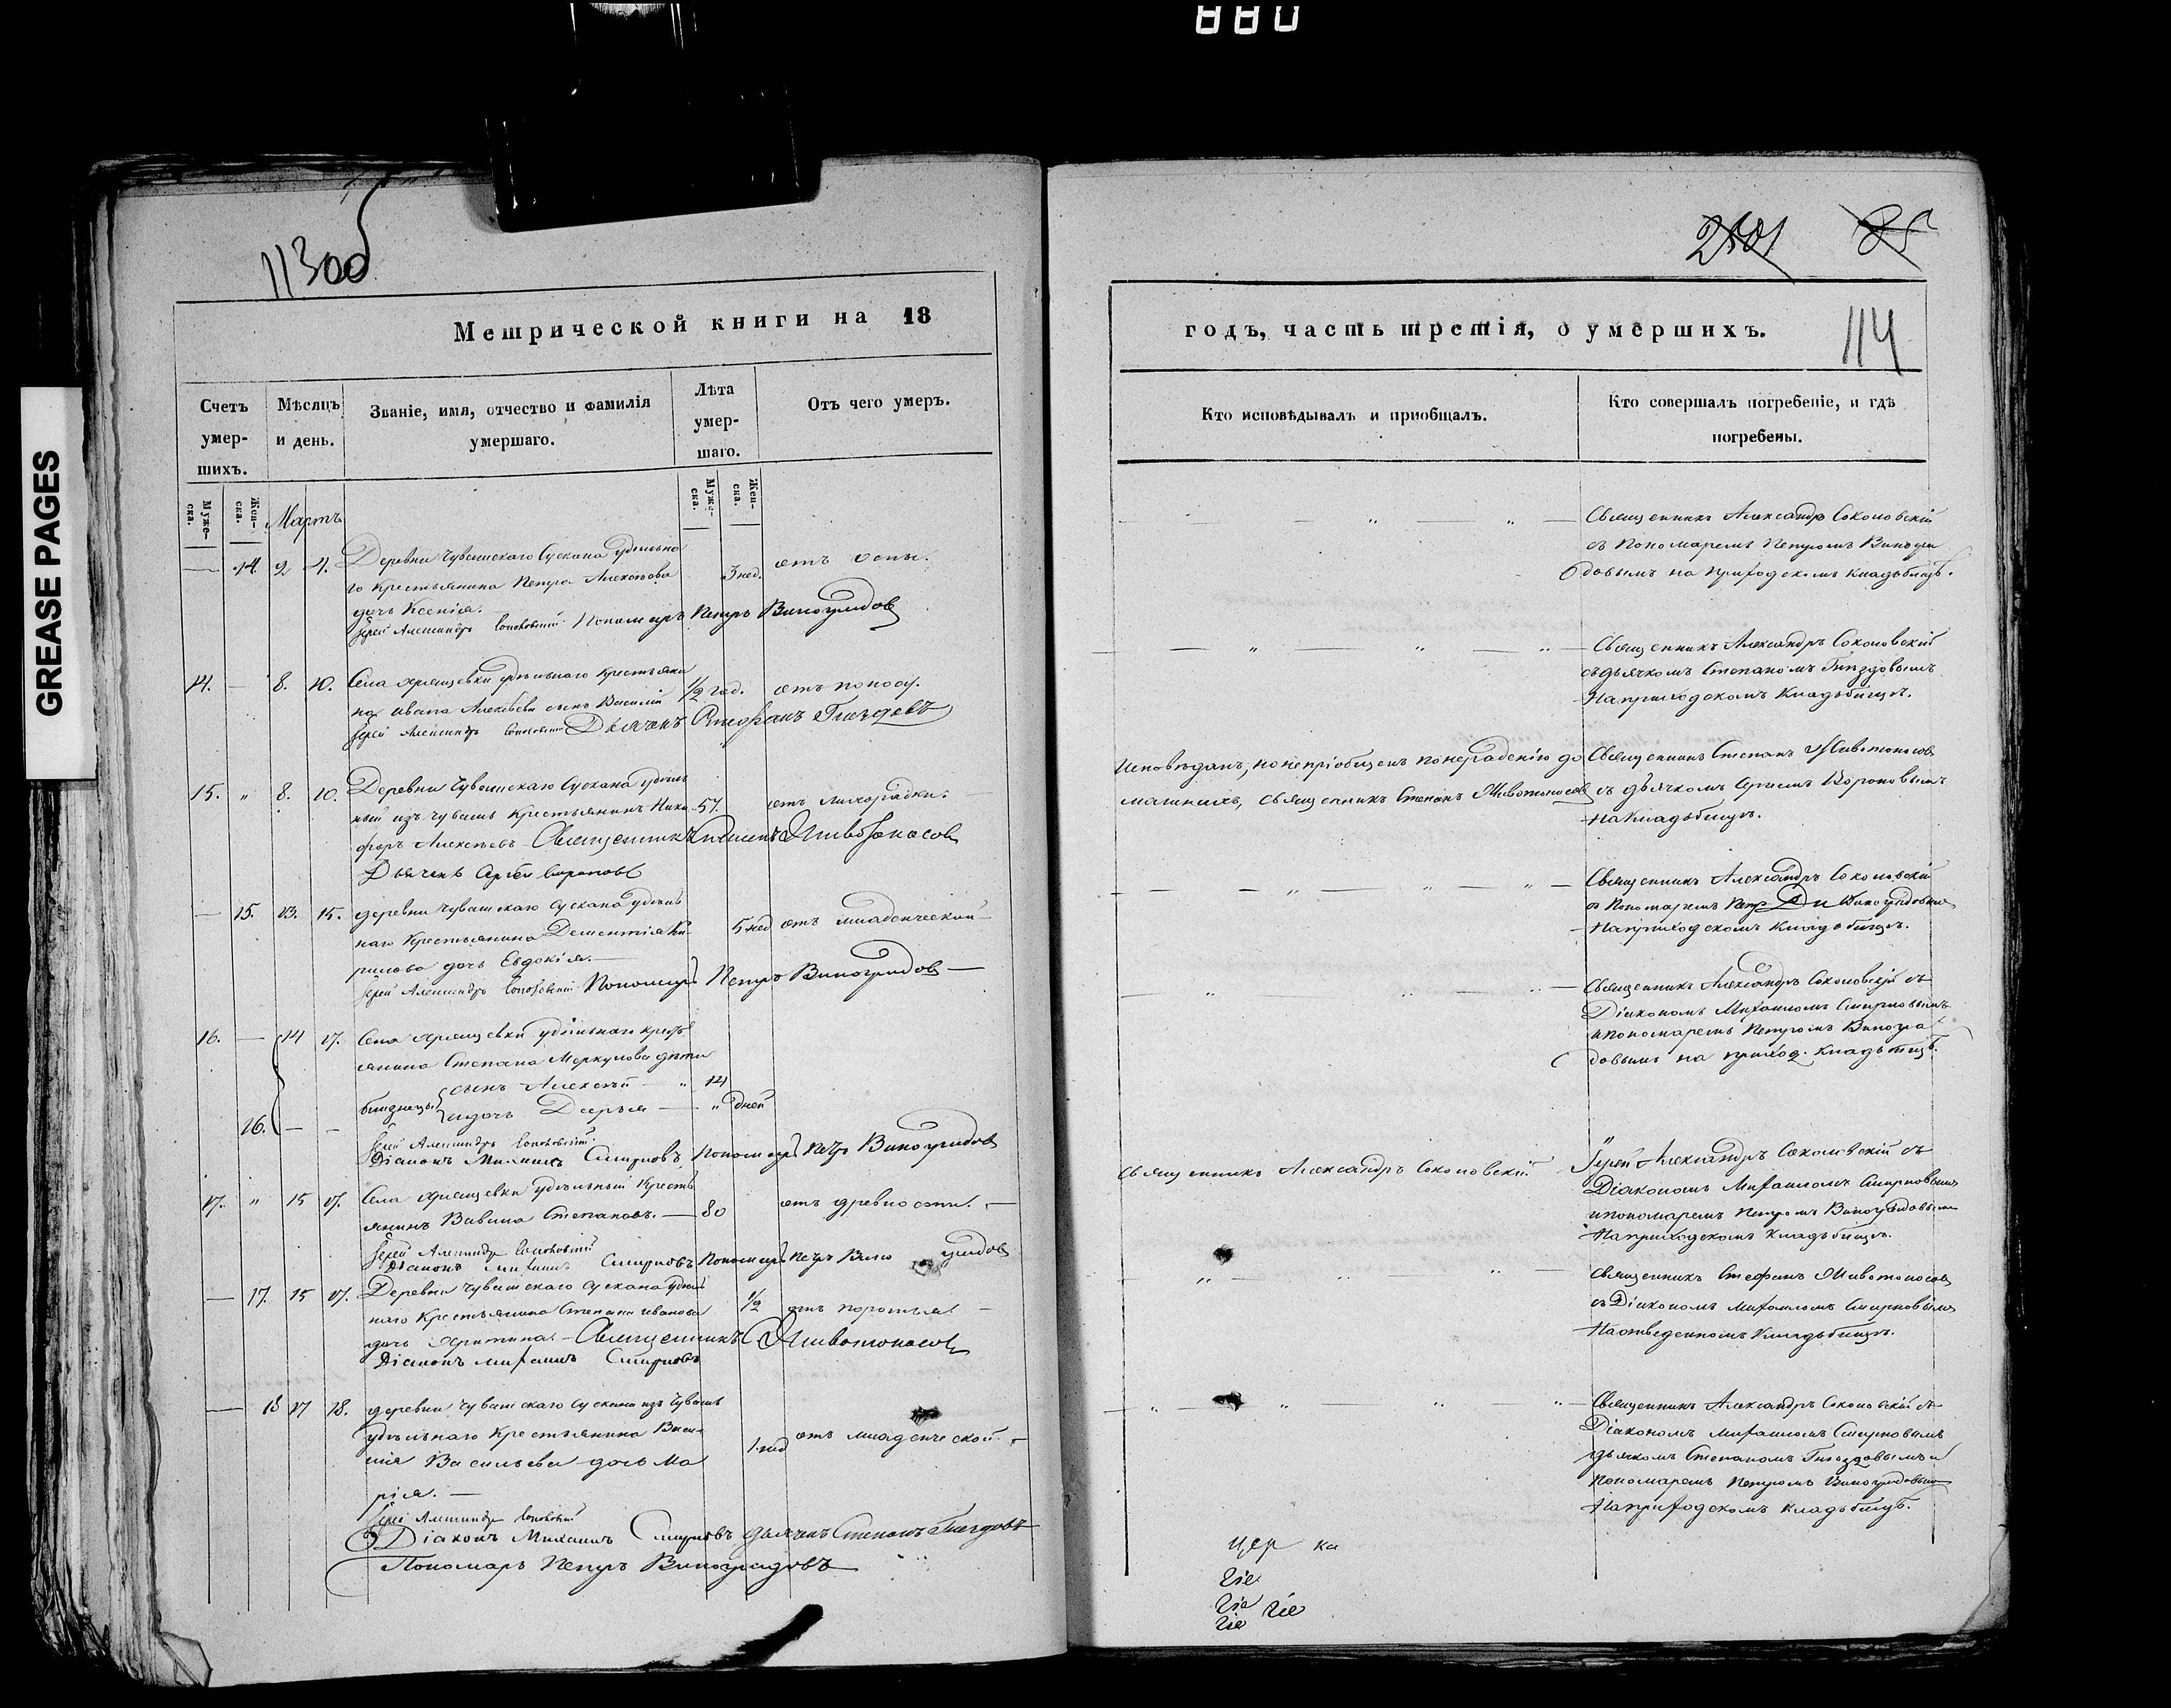 880
GREASE PAGES
113об
Метрической книги на 18
Счетъ умер-шихъ.
Мѣсяцъ и день.
Званіе, имя, отчество и фамилія умершаго.
Лѣта умер-шаго.
Отъ чего умеръ.
Муже-ска.
Жен-ска.
Мартъ
Муже-ска.
Жен-ска.
— 14. 2 4. Деревни Чувашскаго Сускана удѣльна
го Крестьянина Петра Алексѣева 3 нед. отъ оспы.
дочь Ксенія.
Іерей Александръ Соколовскій Пономарь Петръ Виноградов
14. — 8. 10. Села Хрящевки удѣльнаго Крестьяни
на Ивана Алексѣева сынъ Василій 1/2 год. отъ поносу.
Іерей Александръ Соколовскій Дьячекъ Стефанъ Гнездовъ
15. " 8. 10. Деревни Чувашскаго Сускана удѣль
ный изъ Чувашъ Крестьянинъ Ники 57 отъ лихорадки.
форъ Алексѣевъ Священникъ Животоносов
Дьячекъ Сергѣй Воронов
— 15. 13. 15. деревни Чувашскаго Сускана удѣль
наго Крестьянина Дементія Ки 5 нед отъ младенческой
рилова дочь Евдокія.
Іерей Александръ Соколовскій Пономарь Петръ Виноградов
16. — 14 17. Села Хрящевки удѣльнаго Крестья
янина Степана Меркулова дѣти
близнецы сынъ Алексѣй " 14
16. — — и дочь Дарья " дней
Іерей Александръ Соколовскій
Діаконъ Михаилъ Смирновъ Пономарь Петръ Виноградов
17. " 15 17. Села Хрящевки удѣльный Кресть
янинъ Вавила Степановъ. 80 отъ древности.
Іерей Александръ Соколовскій
Діаконъ Михаилъ Смирновъ Пономарь Петръ Вино градов
— 17. 15 17. Деревни Чувашскаго Сускана удѣль
наго Крестьянина Степана Иванова 1/2
дочь Христина. Священникъ Животоносов
Діаконъ Михаилъ Смирновъ
— 18 17 18. деревни Чувашскаго Сускана изъ Чувашъ
удѣльнаго Крестьянина Васи 1 нед отъ младенческой.
лія Васильева дочь Ма
рія.
Іерей Александръ Соколовскій
Діаконъ Михаилъ Смирновъ дьячекъ Степанъ Гнездовъ
Пономарь Петръ Виноградовъ
85
годъ, часть третія, о умершихъ.
114
Кто исповѣдывалъ и пріобщалъ.
Кто совершалъ погребеніе, и гдѣ погребены.
Священникъ Александръ Соколовскій
съ Пономаремъ Петромъ Виногра
довымъ на приходскомъ кладбищѣ.
Священникъ Александръ Соколовскій
съ дьячкомъ Степаномъ Гнездовымъ
На приходскомъ Кладьбищѣ.
Исповѣданъ, но не пріобщенъ по нерадѣнію до
машнихъ, священникъ Стефанъ Животоносов
Священникъ Степанъ Животоносов
съ дьячкомъ Сергіемъ Вороновымъ
На Кладьбищѣ.
Священникъ Александръ Соколовскій
съ Пономаремъ Петромъ Виноградовымъ
На приходскомъ Кладьбищѣ.
Священникъ Александръ Соколовскій съ
Діакономъ Михаиломъ Смирновымъ
и пономаремъ Петромъ Виногра
довымъ на приход. Кладьбищѣ.
Священникъ Александръ Соколовскій
Іерей Александръ Соколовскій съ
Діакономъ Михаиломъ Смирновымъ
и пономаремъ Петромъ Виноградовымъ
На приходскомъ Кладьбищѣ.
Священникъ Стефанъ Животоносов
съ Діакономъ Михаиломъ Смирновымъ
На отведенномъ Кладьбищѣ.
Священникъ Александръ Соколовскій съ
Діакономъ Михаиломъ Смирновымъ
дьячкомъ Степаномъ Гнездовымъ и
Пономаремъ Петромъ Виноградовымъ
На приходскомъ кладьбищѣ.